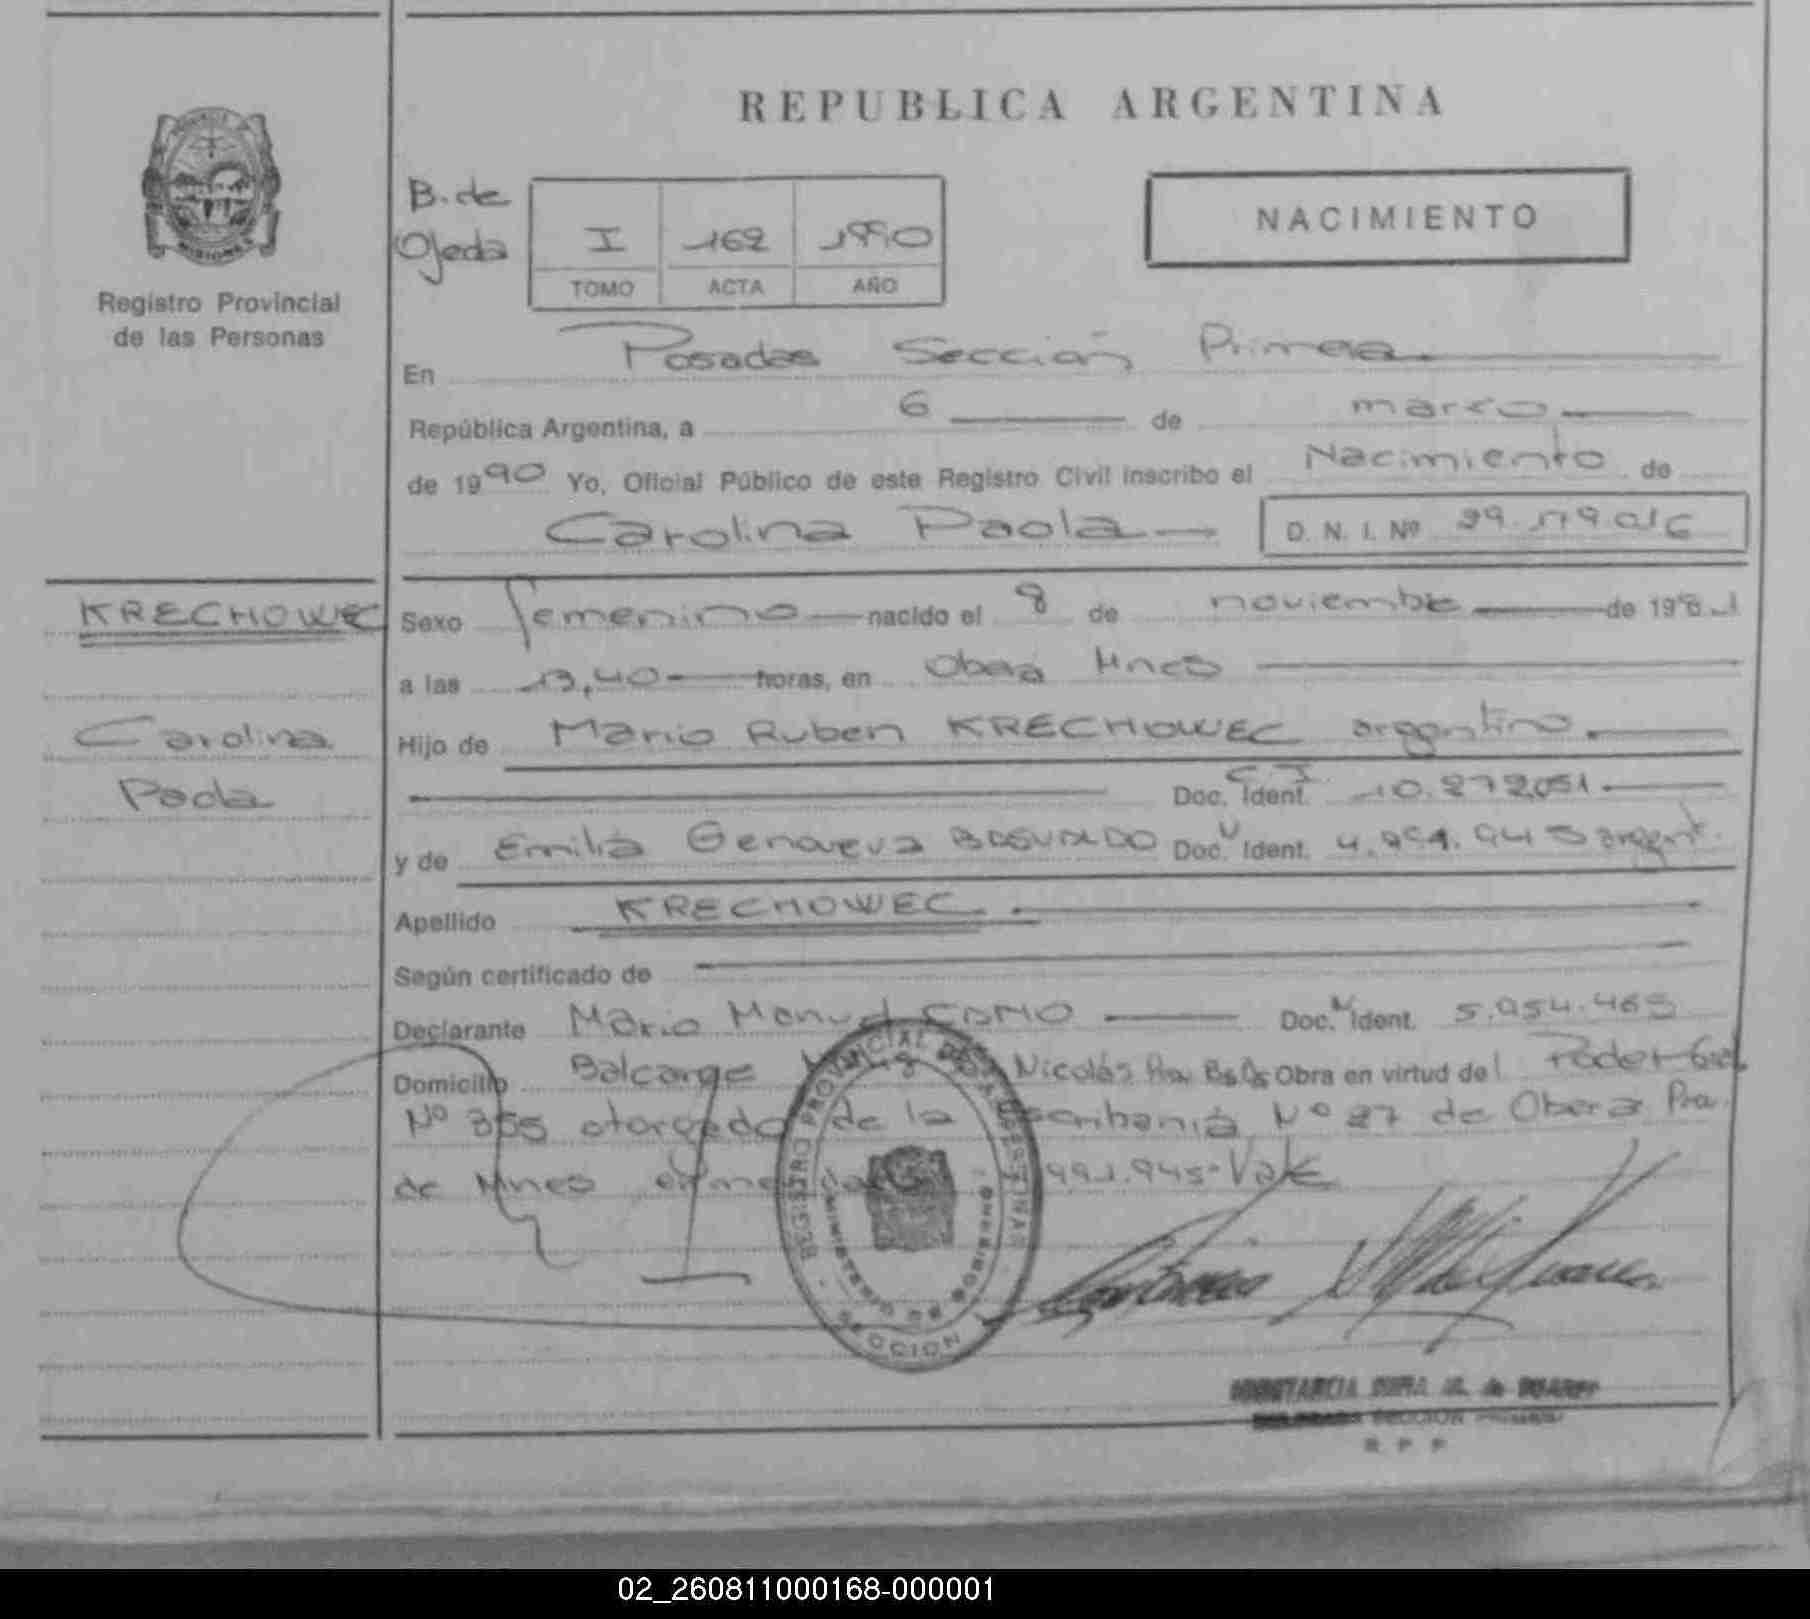 REPUBLICA ARGENTINA
MISIONES
Registro Provincial
de las Personas
B. de
Ojeda
I 162 1990
TOMO ACTA AÑO
NACIMIENTO
En Posadas Sección Primera
República Argentina, a 6 de marzo
de 1990 Yo, Oficial Público de este Registro Civil inscribo el Nacimiento de
Carolina Paola D. N. I. Nº
KRECHOWEC
Carolina
Paola
Sexo femenino nacido el 8 de noviembre de 1981
a las 13,40 horas, en Oberá Mnes
Hijo de Mario Ruben KRECHOWEC argentino.
Doc. Ident. C. I. 10.272051
y de Emilia Genoveva Doc. Ident. argent.
Apellido KRECHOWEC.
Según certificado de
Declarante Mario Manuel Doc. Ident. 5.954.465
Domicilio Balcarce Nicolás Pra. Bs As Obra en virtud del Poder Gral
Nº 355 otorgado de la Escribanía Nº 27 de Oberá Pra.
de Mnes 991.945-Vale
REGISTRO PROVINCIAL DE LAS PERSONAS
MINISTERIO DE GOBIERNO
SECCION
SECCION
R P P
02_260811000168-000001